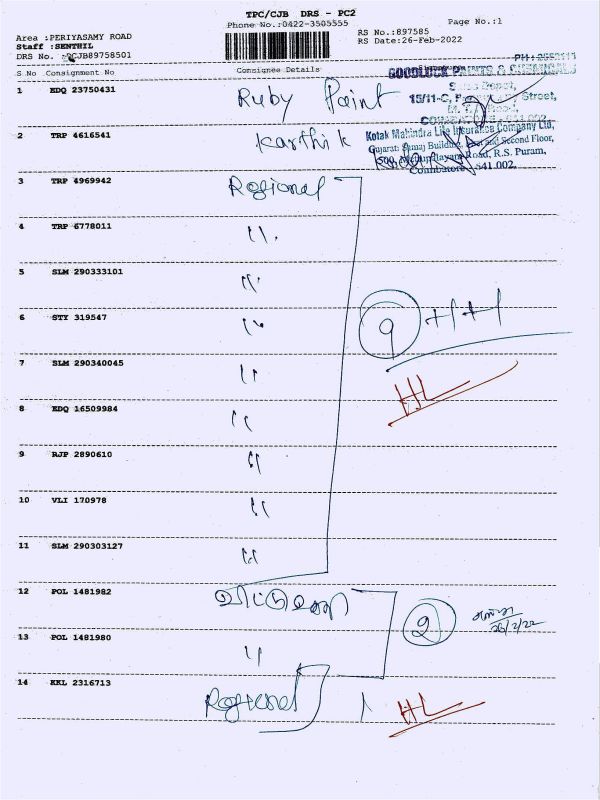 TPC/CJB DRS - PC2
Phone No.:0422-3505555
Page No.:1
Area : PERIYASAMY ROAD
Staff : SENTHIL
DRS No. CJB89758501
RS No.:897585
RS Date:26-Feb-2022
S No Consignment No Consignee Details
PH: 2552111
GOODLUCK PAINTS & CHEMICALS
15/11-C, Street,
1 EDQ 23750431 Ruby Paint
Kotak Mahindra Life Insurance Company Ltd,
Gujarat Samaj Building, and Second Floor,
Road, R.S. Puram,
Coimbatore 641 002.
2 TRP 4616541 Karthik
3 TRP 4969942 Regional
4 TRP 6778011 "
5 SLM 290333101 "
6 STY 319547 "
9 +1+1
7 SLM 290340045 "
HL
8 EDQ 16509984 "
9 RJP 2890610 "
10 VLI 170978 "
11 SLM 290303127 "
12 POL 1481982
2
26/2/22
13 POL 1481980 "
14 KKL 2316713 Regional 1 HL